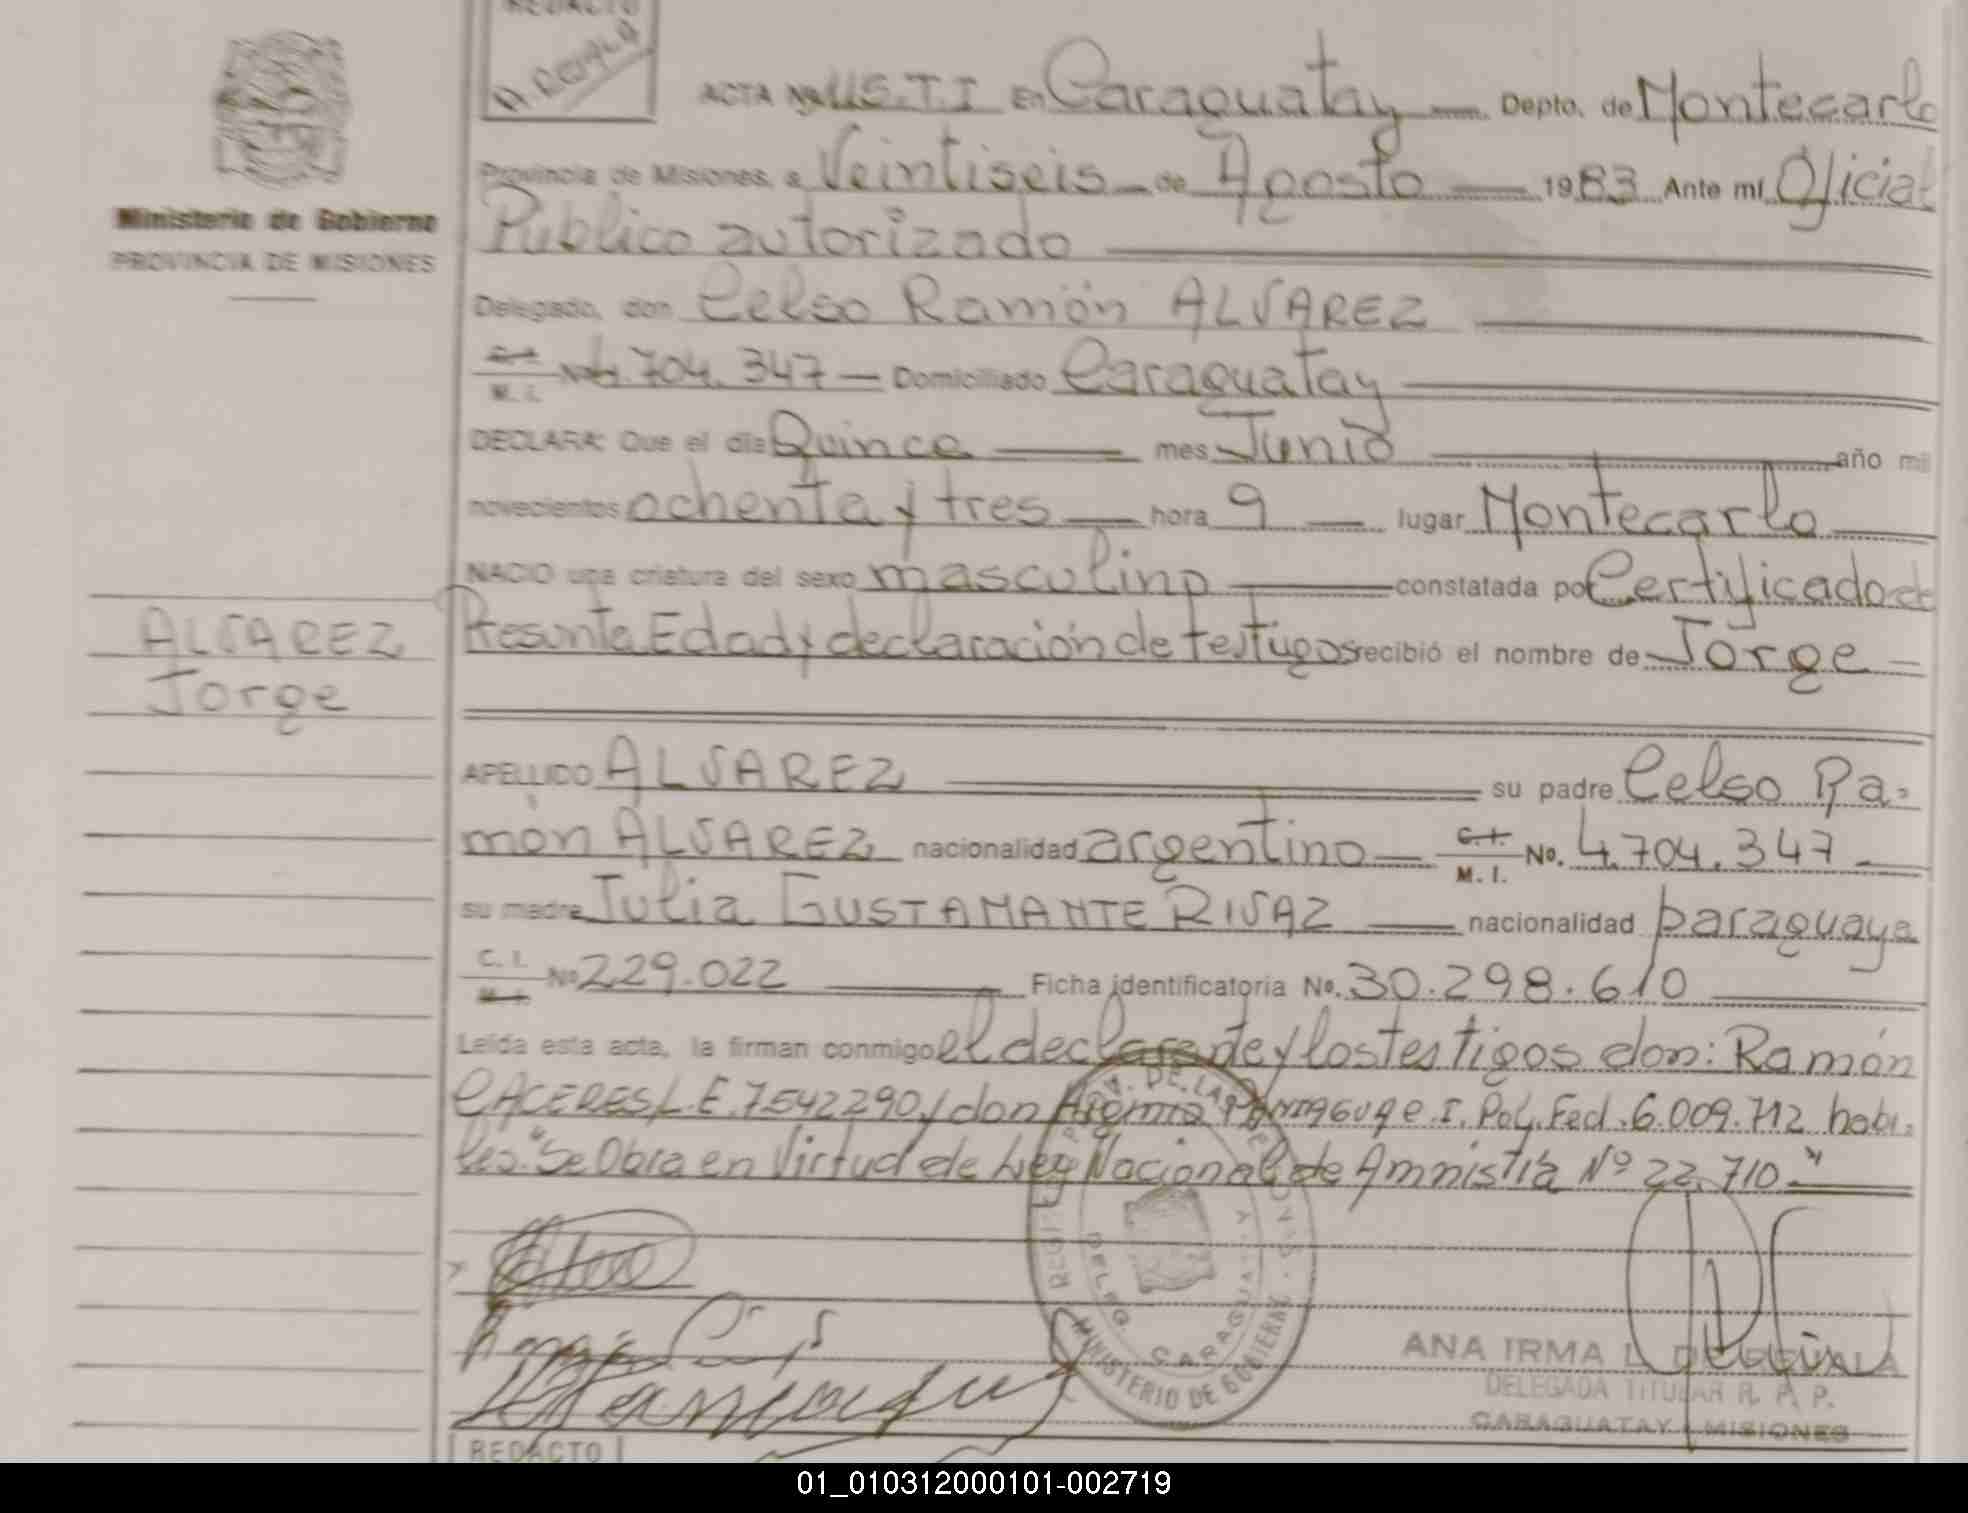 REDACTO
ACTA No. 115.T.I En Caraguatay Depto. de Montecarlo
Ministerio de Gobierno
PROVINCIA DE MISIONES
Provincia de Misiones, a Veintiseis de Agosto 1983 Ante mí Oficial
Publico autorizado
Delegado, don Celso Ramón ALVAREZ
C.I. M.I. No. 4.704.347 Domiciliado Caraguatay
DECLARA: Que el día Quince mes Junio año mil
novecientos ochenta y tres hora 9 lugar Montecarlo
NACIO una criatura del sexo masculino constatada por Certificado de
Presunta Edad y declaración de testigos recibió el nombre de Jorge
ALVAREZ
Jorge
APELLIDO ALVAREZ su padre Celso Ra-
món ALVAREZ nacionalidad argentino C.I. M.I. No. 4.704.347
su madre Julia GUSTAMANTE RIVAZ nacionalidad paraguaya
C.I. M.I. No 229.022 Ficha identificatoria No. 30.298.610
Leída esta acta, la firman conmigo el declarante y los testigos don: Ramón
CACERES L.E. 7.542.290 y don PANIAGUA C.I. Pol. Fed. 6.009.712 habi-
les. "Se Obra en Virtud de Ley Nacional de Amnistía Nº 22.710"
MINISTERIO DE GOBIERNO
DELEG. CARAGUATAY
ANA IRMA L. DE
DELEGADA TITULAR R. P. P.
CARAGUATAY MISIONES
REDACTO
01_010312000101-002719